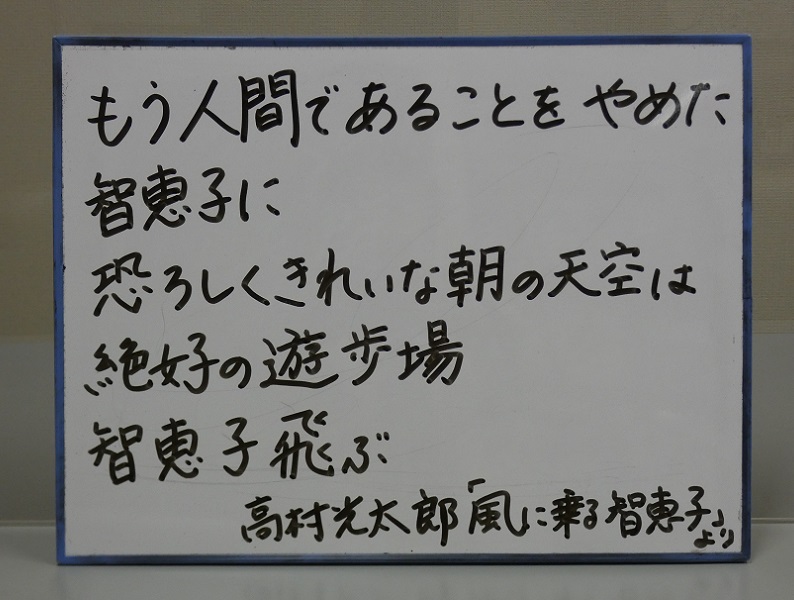 もう人間であることをやめた
智恵子に
恐ろしくきれいな朝の天空は
絶好の遊歩場
智恵子飛ぶ
高村光太郎「風に乗る智恵子」より